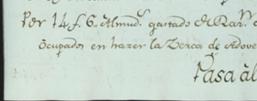 Per 14 f. 6 Almud.s gastado de Pan.
Ocupados en hazer la Zerca de Adove
Pasa àl